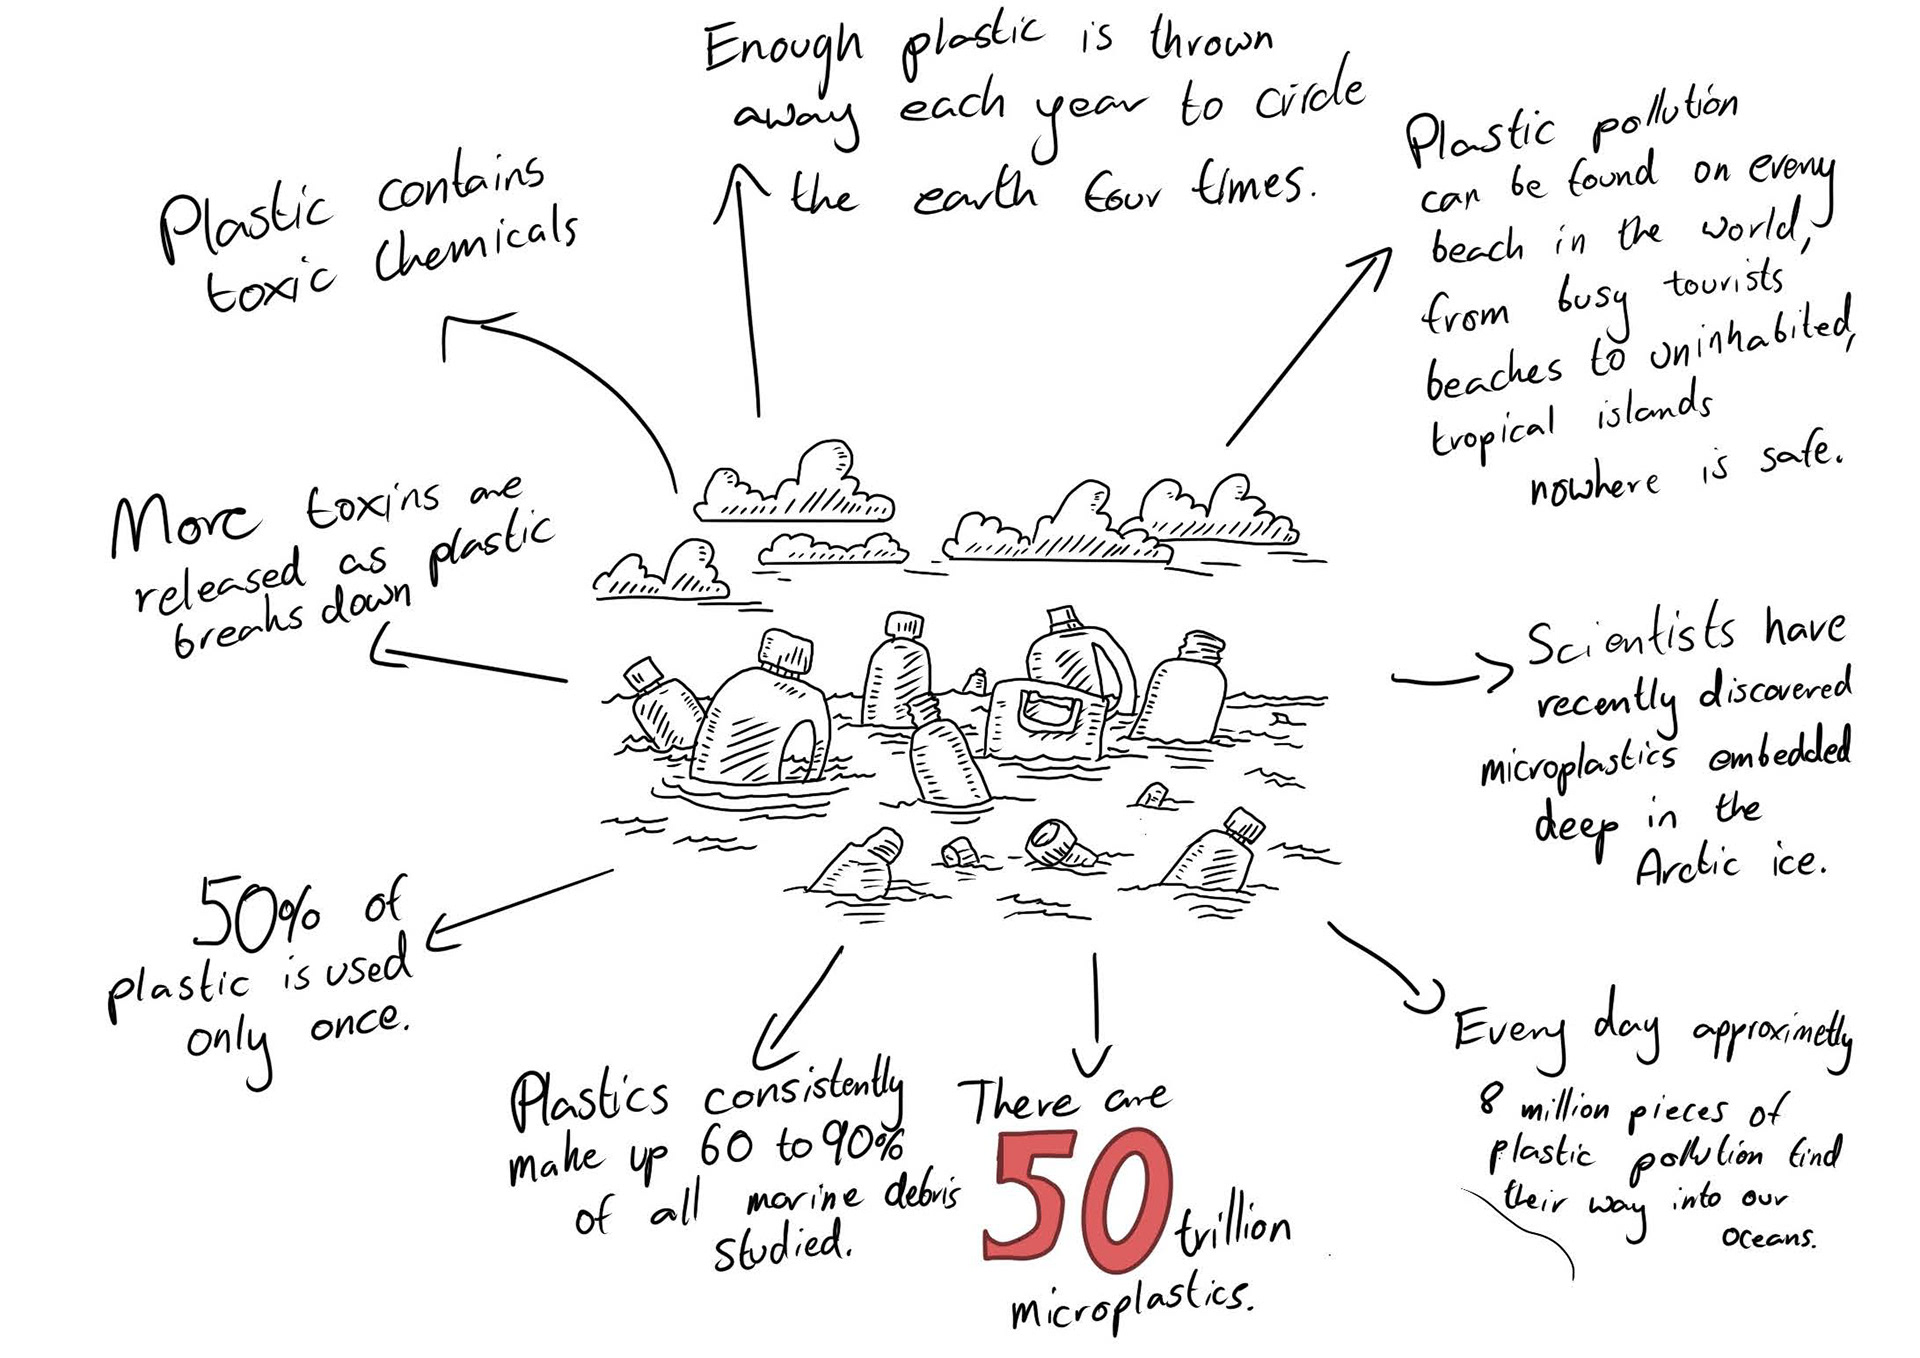 Enough plastic is thrown
away each year to circle
the earth four times.
Plastic pollution
can be found on every
beach in the world,
from busy tourists
beaches to uninhabited,
tropical islands
nowhere is safe.
Scientists have
recently discovered
microplastics embedded
deep in the
Arctic ice.
Every day approximetly
8 million pieces of
plastic pollution find
their way into our
oceans.
There are
50 trillion
microplastics.
Plastics consistently
make up 60 to 90%
of all marine debris
studied.
50% of
plastic is used
only once.
More toxins are
released as plastic
breaks down
Plastic contains
toxic chemicals